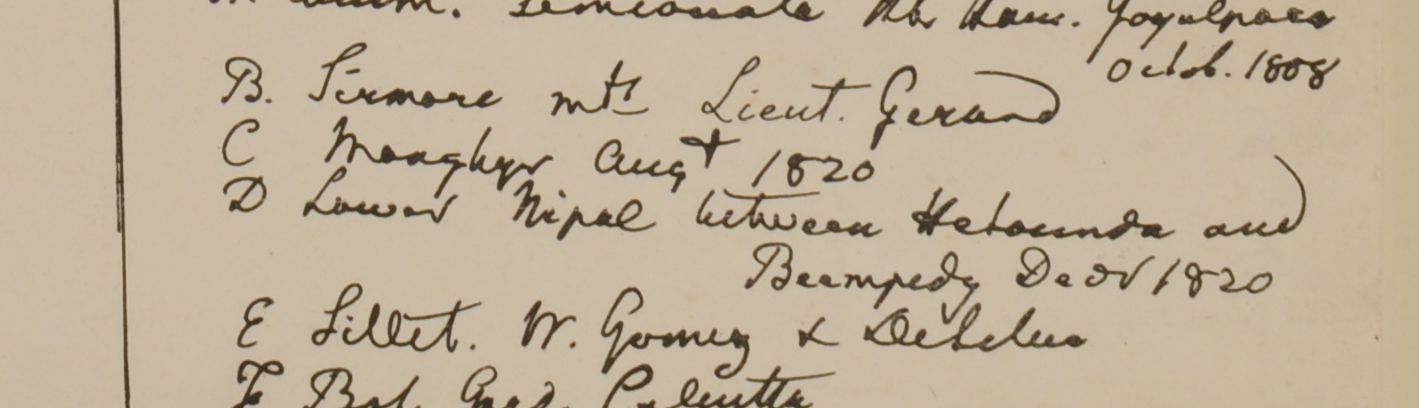 Hb Ham. Goyalpara
Octob. 1808
B. Sirmore mts Lieut. Gerard
C Monghyr Augt 1820
D Lower Nipal between Hetounda and
Beempedy Decr 1820
E Sillet. W. Gomez & DeSilva
F Bot. Gard. Calcutta